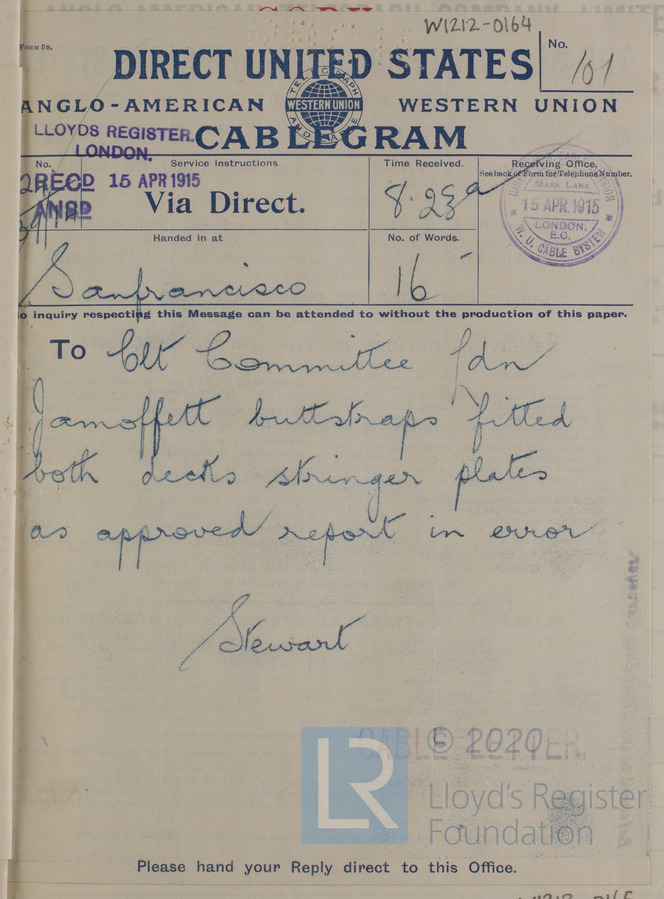 W1212-0164
FORM 5D.
DIRECT UNITED STATES
No.
101
ANGLO-AMERICAN
TELEGRAPH AND CABLE
WESTERN UNION
WESTERN UNION
LLOYDS REGISTER.
LONDON.
CABLEGRAM
No.
Service Instructions.
Time Received.
Receiving Office,
See back of Form for Telephone Number.
RECD 15 APR 1915
ANSD
Via Direct.
8.23a
MARK LANE
15 APR. 1915
LONDON,
E.C.
W. U. CABLE SYSTEM
Handed in at
No. of Words.
Sanfrancisco
16
o inquiry respecting this Message can be attended to without the production of this paper.
To Clt Committee Ldn
Jamoffett buttstraps fitted
both decks stringer plates
as approved report in error
Stewart
CABLE LETTER.
© 2020
LR
Lloyd's Register
Foundation
Please hand your Reply direct to this Office.